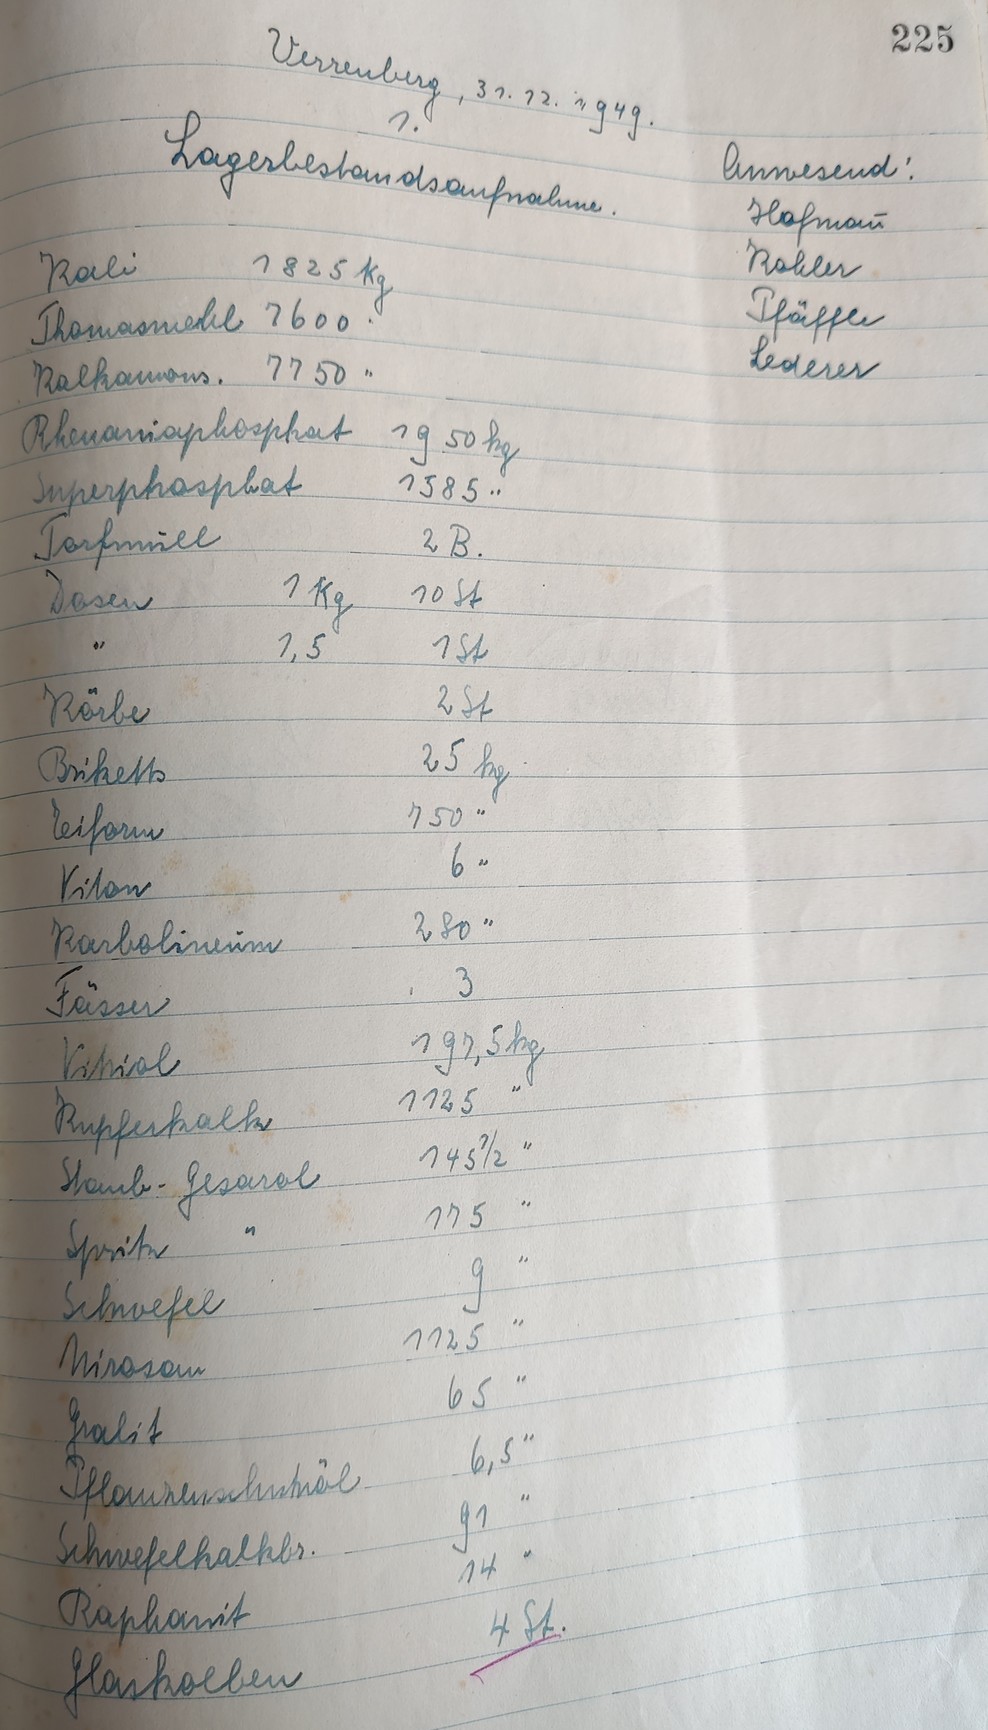 225
Verrenberg, 31.12.1949.
1.
Lagerbestandsaufnahme.
Anwesend:
Hofman̄
Kohler
Pfäffle
Lederer
Kali 1825 Kg
Thomasmehl 1600 "
Kalkamons. 1150 "
Rhenaniaphosphat 1950 kg
Superphosphat 1585 "
Torfmüll 2 B.
Dosen 1 Kg 10 St
" 1,5 1 St
Körbe 2 St
Briketts 25 kg
150 "
Viton 6 "
Karbolineum 280 "
Fässer 3
Vitriol 197,5 kg
Kupferkalk 1125 "
Staub-Gesarol 145 1/2 "
Spritz " 175 "
Schwefel 9 "
Nirosan 1125 "
Gralit 65 "
Pflanzenschutzöl 6,5 "
Schwefelkalkbr. 91 "
Raphanit 14 "
Glaskolben 4 St.